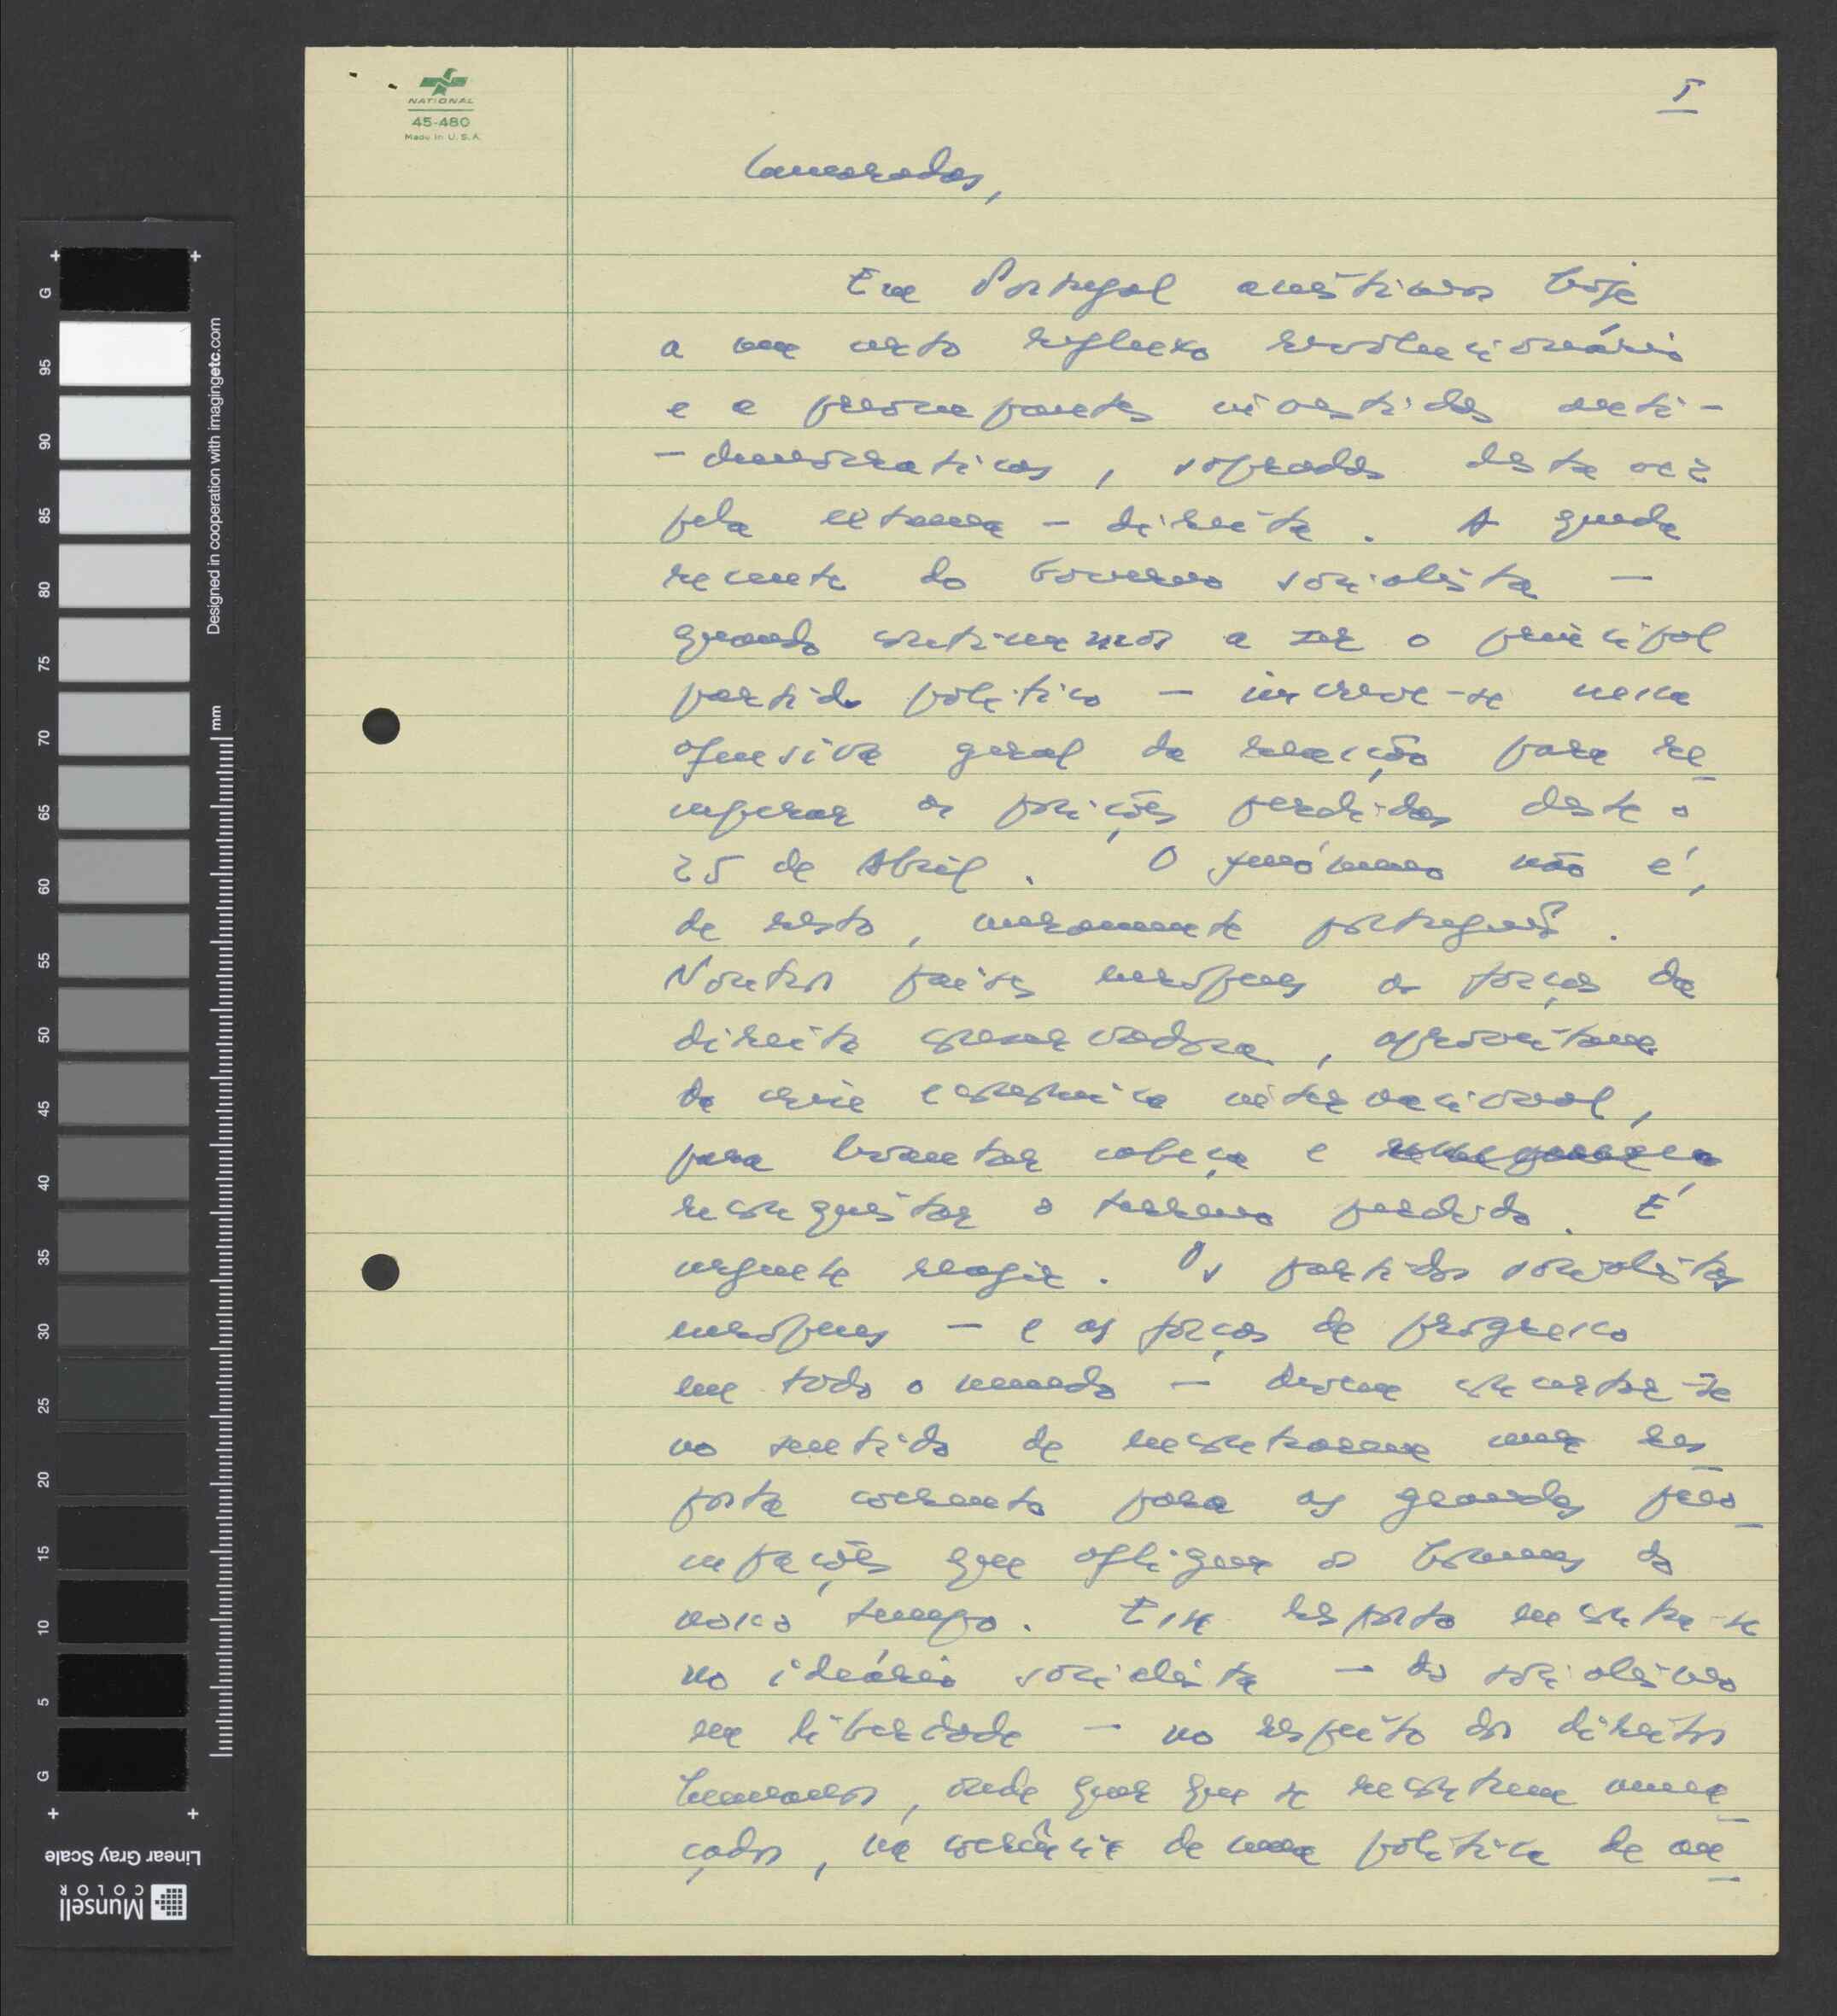 NATIONAL
45-480
Made in U.S.A.
I
Camaradas,
Em Portugal assistimos hoje
a um certo reflexo revolucionário
e a preocupantes investidas anti-
-democraticas, sopradas desta vez
pela extrema-direita. A queda
recente do Governo socialista —
quando continuamos a ser o principal
partido politico — inscreve-se nessa
ofensiva geral da reacção para re-
cuperar as posições perdidas desde o
25 de Abril. O fenómeno não é,
de resto, meramente português.
Noutros paises europeus as forças da
direita conservadora, aproveitam
da crise económica internacional,
para levantar cabeça e
reconquistar o terreno perdido. É
urgente reagir. Os partidos socialistas
europeus — e as forças de progresso
em todo o mundo — devem concertar-se
no sentido de encontrarem uma res-
posta coerente para as grandes preo-
cupações que afligem os homens do
nosso tempo. Essa resposta encontra-se
no ideário socialista — do socialismo
em liberdade — no respeito dos direitos
humanos, onde quer que se encontrem amea-
çados, na coerência de uma politica de
G 95 90 85 80 75 70 65 60 55 50 45 40 35 30 25 20 15 10 5 G
mm
Designed in cooperation with imagingetc.com
Linear Gray Scale
Munsell
COLOR